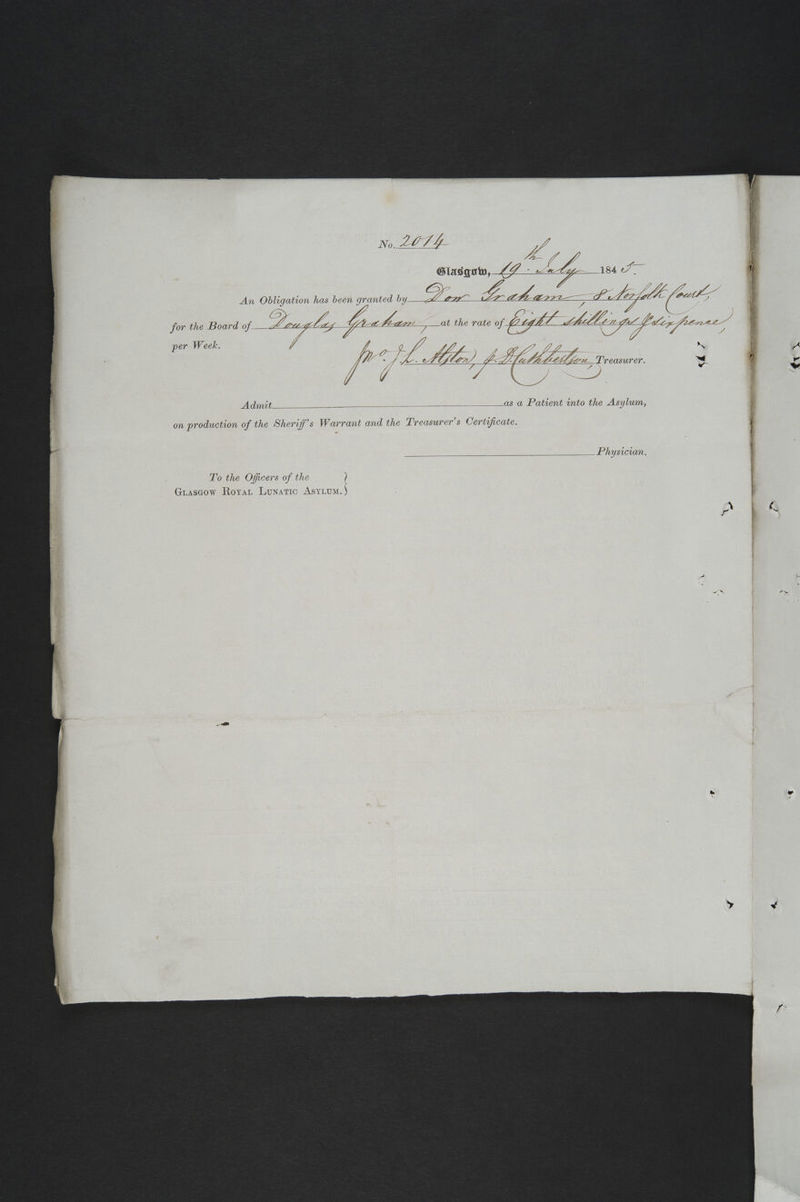 No. 2014
Glasgow, 19th July 1845.
An Obligation has been granted by Don Graham, 8 Norfolk Court,
for the Board of Douglas Graham, at the rate of Eight shillings & six pence,
per Week.
J. L. Alston, p. D. Cuthbertson, Treasurer.
Admit as a Patient into the Asylum,
on production of the Sheriff's Warrant and the Treasurer's Certificate.
Physician.
To the Officers of the
Glasgow Royal Lunatic Asylum.